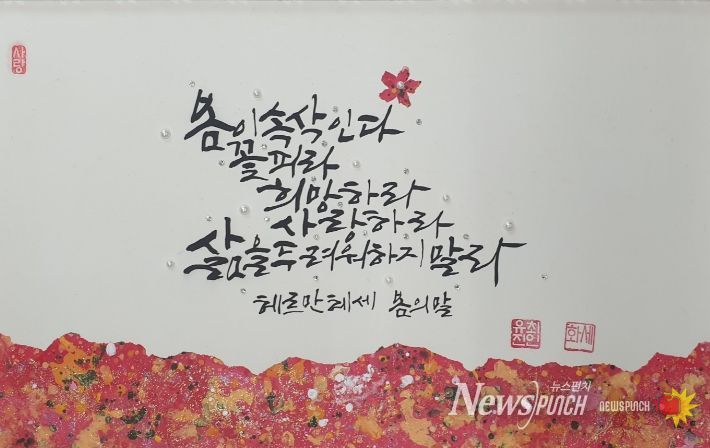 사랑
봄이 속삭인다
꽃피라
희망하라
사랑하라
삶을 두려워하지 말라
헤르만 헤세 봄의 말
화세
뉴스펀치
NEWSPUNCH
NEWSPUNCH